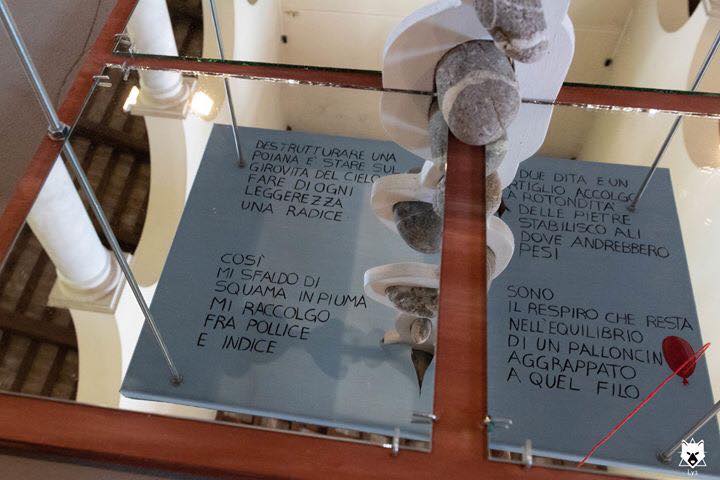 DESTRUTTURARE UNA
POIANA E' STARE SUL
GIROVITA DEL CIELO
FARE DI OGNI
LEGGEREZZA
UNA RADICE
COSÌ
MI SFALDO DI
SQUAMA IN PIUMA
MI RACCOLGO
FRA POLLICE
E INDICE
DUE DITA E UN
ARTIGLIO ACCOLGO
LA ROTONDITÀ
DELLE PIETRE
STABILISCO ALI
DOVE ANDREBBERO
PESI
SONO
IL RESPIRO CHE RESTA
NELL'EQUILIBRIO
DI UN PALLONCIN
AGGRAPPATO
A QUEL FILO
Lyz